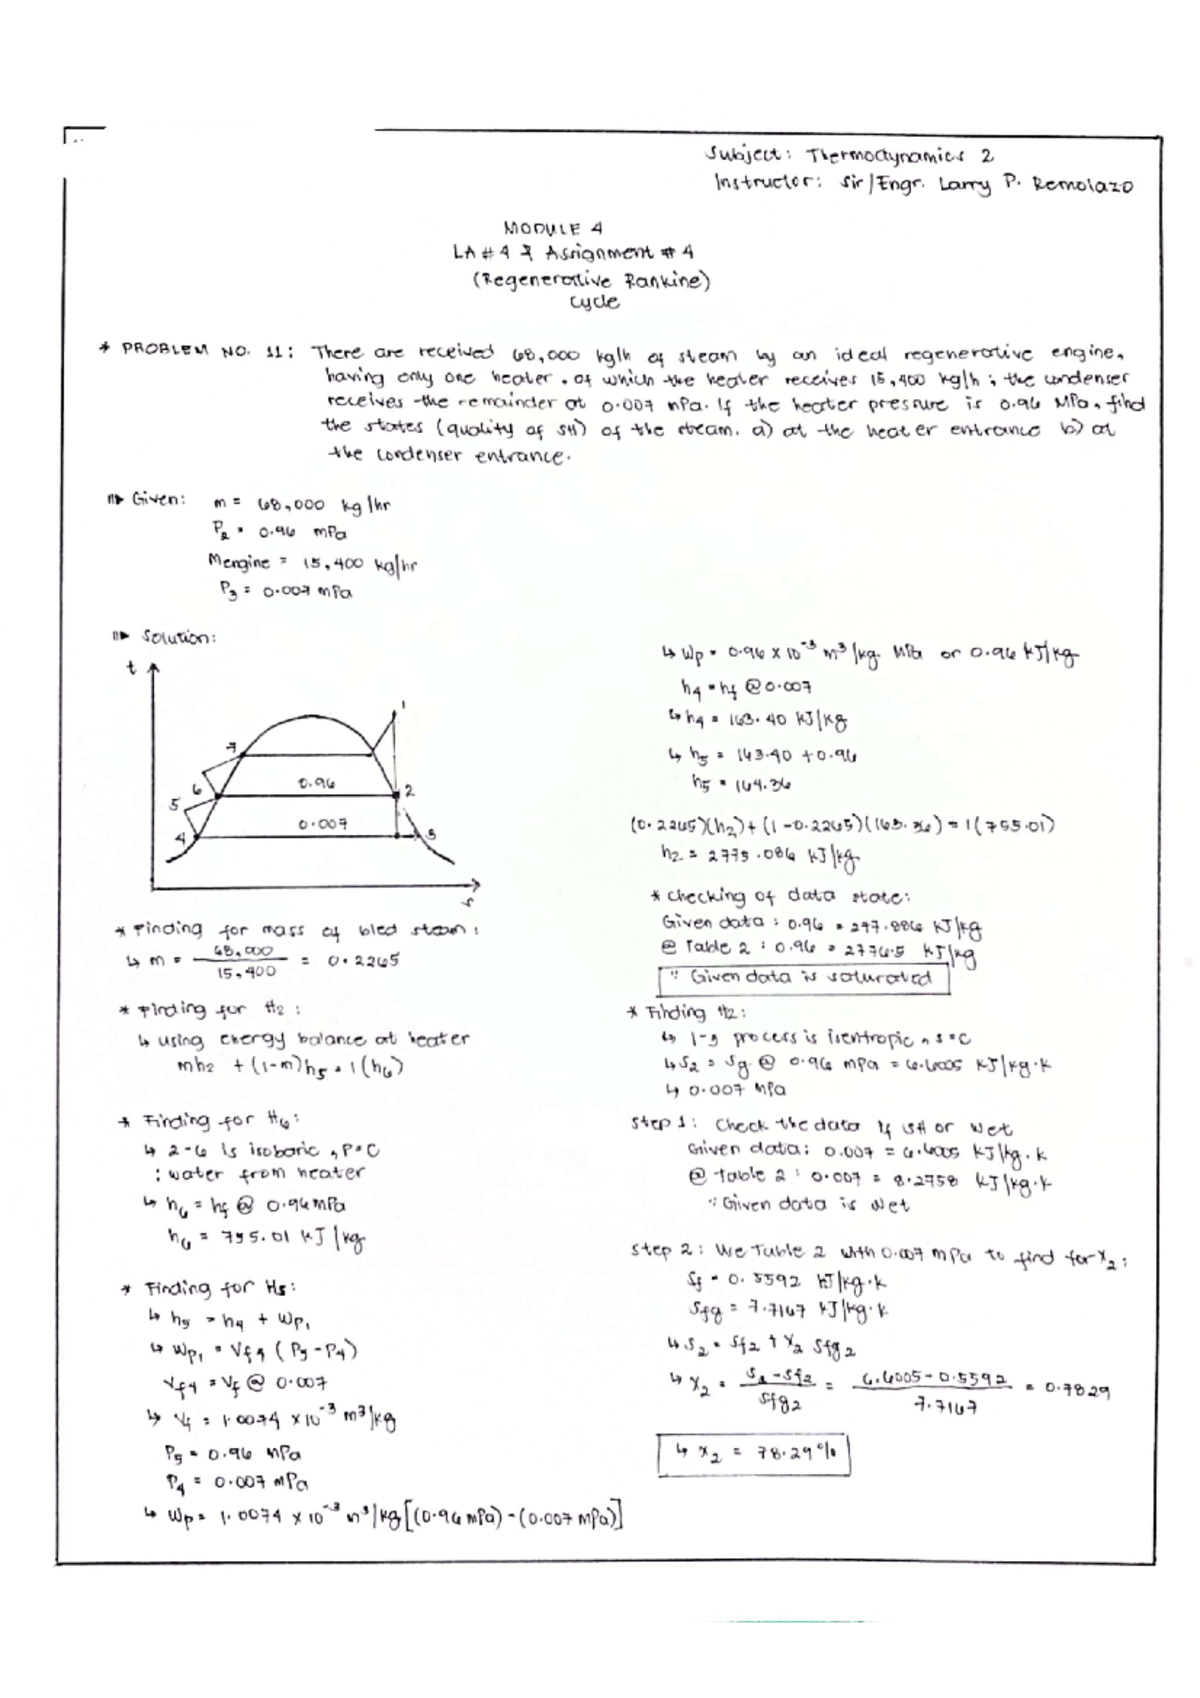 Subject: Thermodynamics 2
Instructor: Sir/Engr. Larry P. Remolazo
MODULE 4
LA # 4 & Assignment # 4
(Regenerative Rankine)
Cycle
* PROBLEM NO. 11: There are received 68,000 kg/h of steam by an ideal regenerative engine,
having only one heater, of which the heater receives 15,400 kg/h; the condenser
receives the remainder at 0.007 MPa. If the heater pressure is 0.96 MPa, find
the states (quality of SH) of the steam. a) at the heater entrance b) at
the condenser entrance.
Given: m = 68,000 kg/hr
P2 = 0.96 mPa
Mengine = 15,400 kg/hr
P3 = 0.007 mPa
Solution:
t
1
7
6
0.96
2
5
0.007
4
3
s
* Finding for mass of bled steam:
↳ m = 68,000 / 15,400 = 0.2265
* Finding for H2:
↳ using energy balance at heater
mh2 + (1-m)h5 = 1(h6)
* Finding for H6:
↳ 2-6 is isobaric, P=C
: water from heater
↳ h6 = hf @ 0.96mPa
h6 = 755.01 kJ/kg
* Finding for H5:
↳ h5 = h4 + Wp1
↳ Wp1 = Vf4 (P5-P4)
Vf4 = Vf @ 0.007
↳ Vf = 1.0074 x10⁻³ m³/kg
P5 = 0.96 mPa
P4 = 0.007 mPa
↳ Wp = 1.0074 x 10⁻³ m³/kg [(0.96 mPa) - (0.007 mPa)]
↳ Wp = 0.96 x 10⁻³ m³/kg MPa or 0.96 kJ/kg
h4 = hf @ 0.007
↳ h4 = 163.40 kJ/kg
↳ h5 = 163.40 + 0.96
h5 = 164.36
(0.2265)(h2) + (1-0.2265)(163.36) = 1(755.01)
h2 = 2775.086 kJ/kg
* Checking of data state:
Given data: 0.96 = 297.886 kJ/kg
@ Table 2: 0.96 = 2776.5 kJ/kg
∵ Given data is saturated
* Finding H2:
↳ 1-3 process is isentropic, s=c
↳ S2 = Sg @ 0.96 mPa = 6.6005 kJ/kg·K
↳ 0.007 MPa
Step 1: Check the data if SH or Wet
Given data: 0.007 = 6.6005 kJ/kg.K
@ Table 2: 0.007 = 8.2758 kJ/kg·K
∵ Given data is wet
Step 2: We Table 2 with 0.007 mPa to find for x2:
Sf = 0.5592 kJ/kg·K
Sfg = 7.7167 kJ/kg·K
↳ S2 = Sf2 + x2 Sfg2
↳ x2 = S2 - Sf2 / Sfg2 = 6.6005 - 0.5592 / 7.7167 = 0.7829
↳ x2 = 78.29%